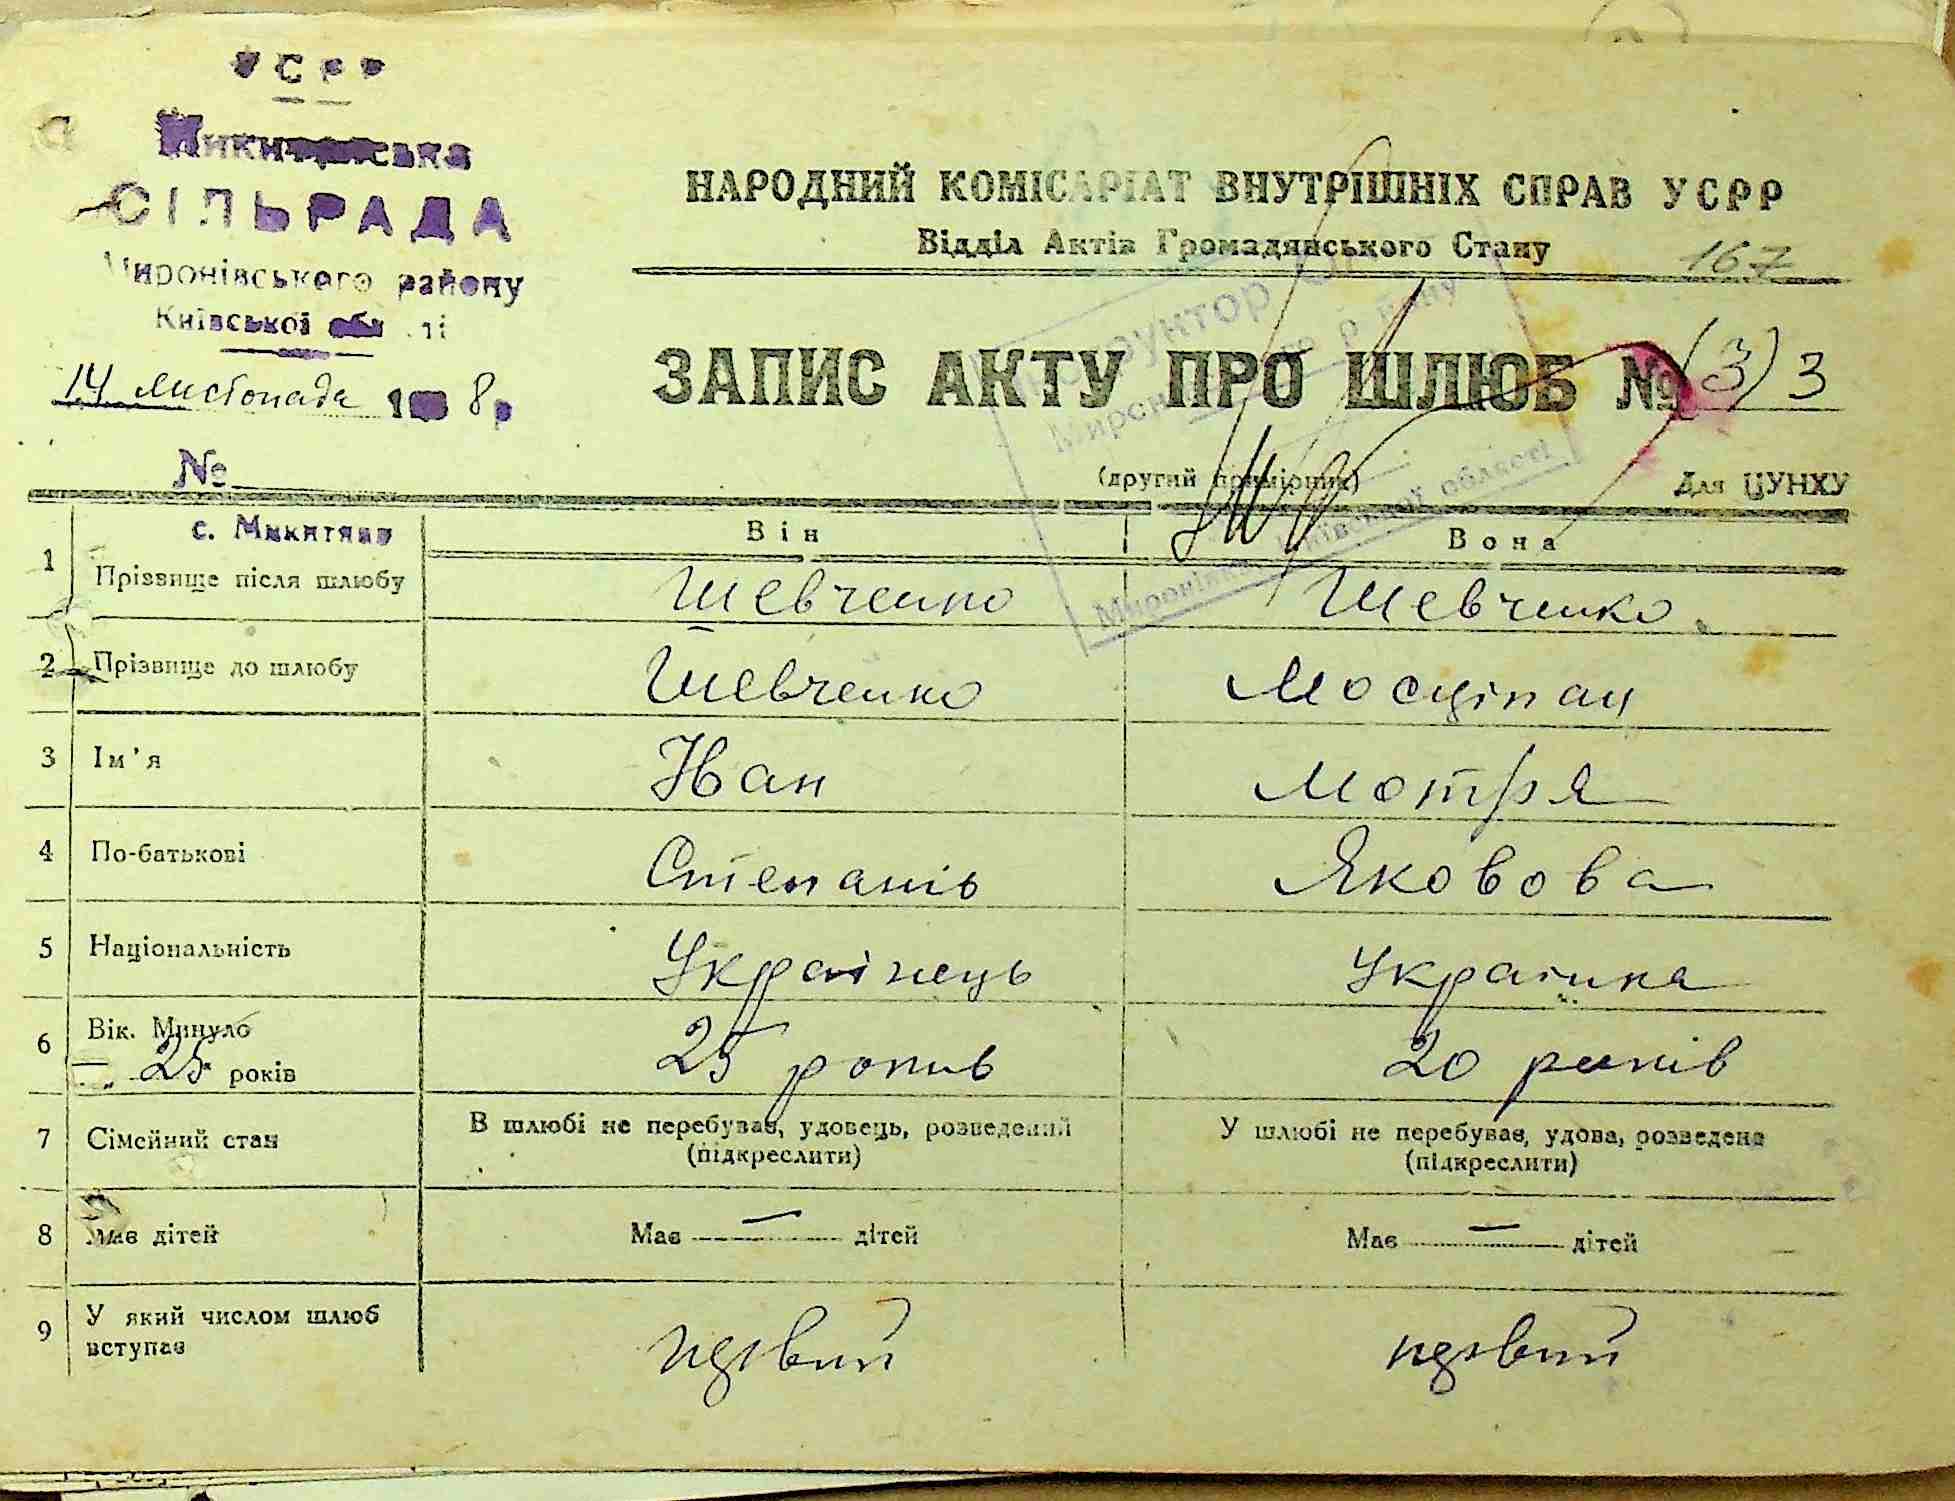 УСРР
СІЛЬРАДА
Миронівського району
Київської
14 листопада 8р
№
НАРОДНИЙ КОМІСАРІАТ ВНУТРІШНІХ СПРАВ УСРР
Відділ Актів Громадянського Стану
167
ЗАПИС АКТУ ПРО ШЛЮБ № (3) 3
(другий примірник)
Для ЦУНХУ
Київської області
с. Микитяне
Він
Вона
1 Прізвище після шлюбу Шевченко Шевченко
2 Прізвище до шлюбу Шевченко Мосціпан
3 Ім'я Іван Мотря
4 По-батькові Степанів Яковова
5 Національність Українець Українка
6 Вік. Минуло 25 років 25 ропив 20 років
7 Сімейний стан В шлюбі не перебував, удовець, розведений У шлюбі не перебував, удова, розведена
(підкреслити) (підкреслити)
8 Має дітей Має — дітей Має — дітей
9 У який числом шлюб
вступає